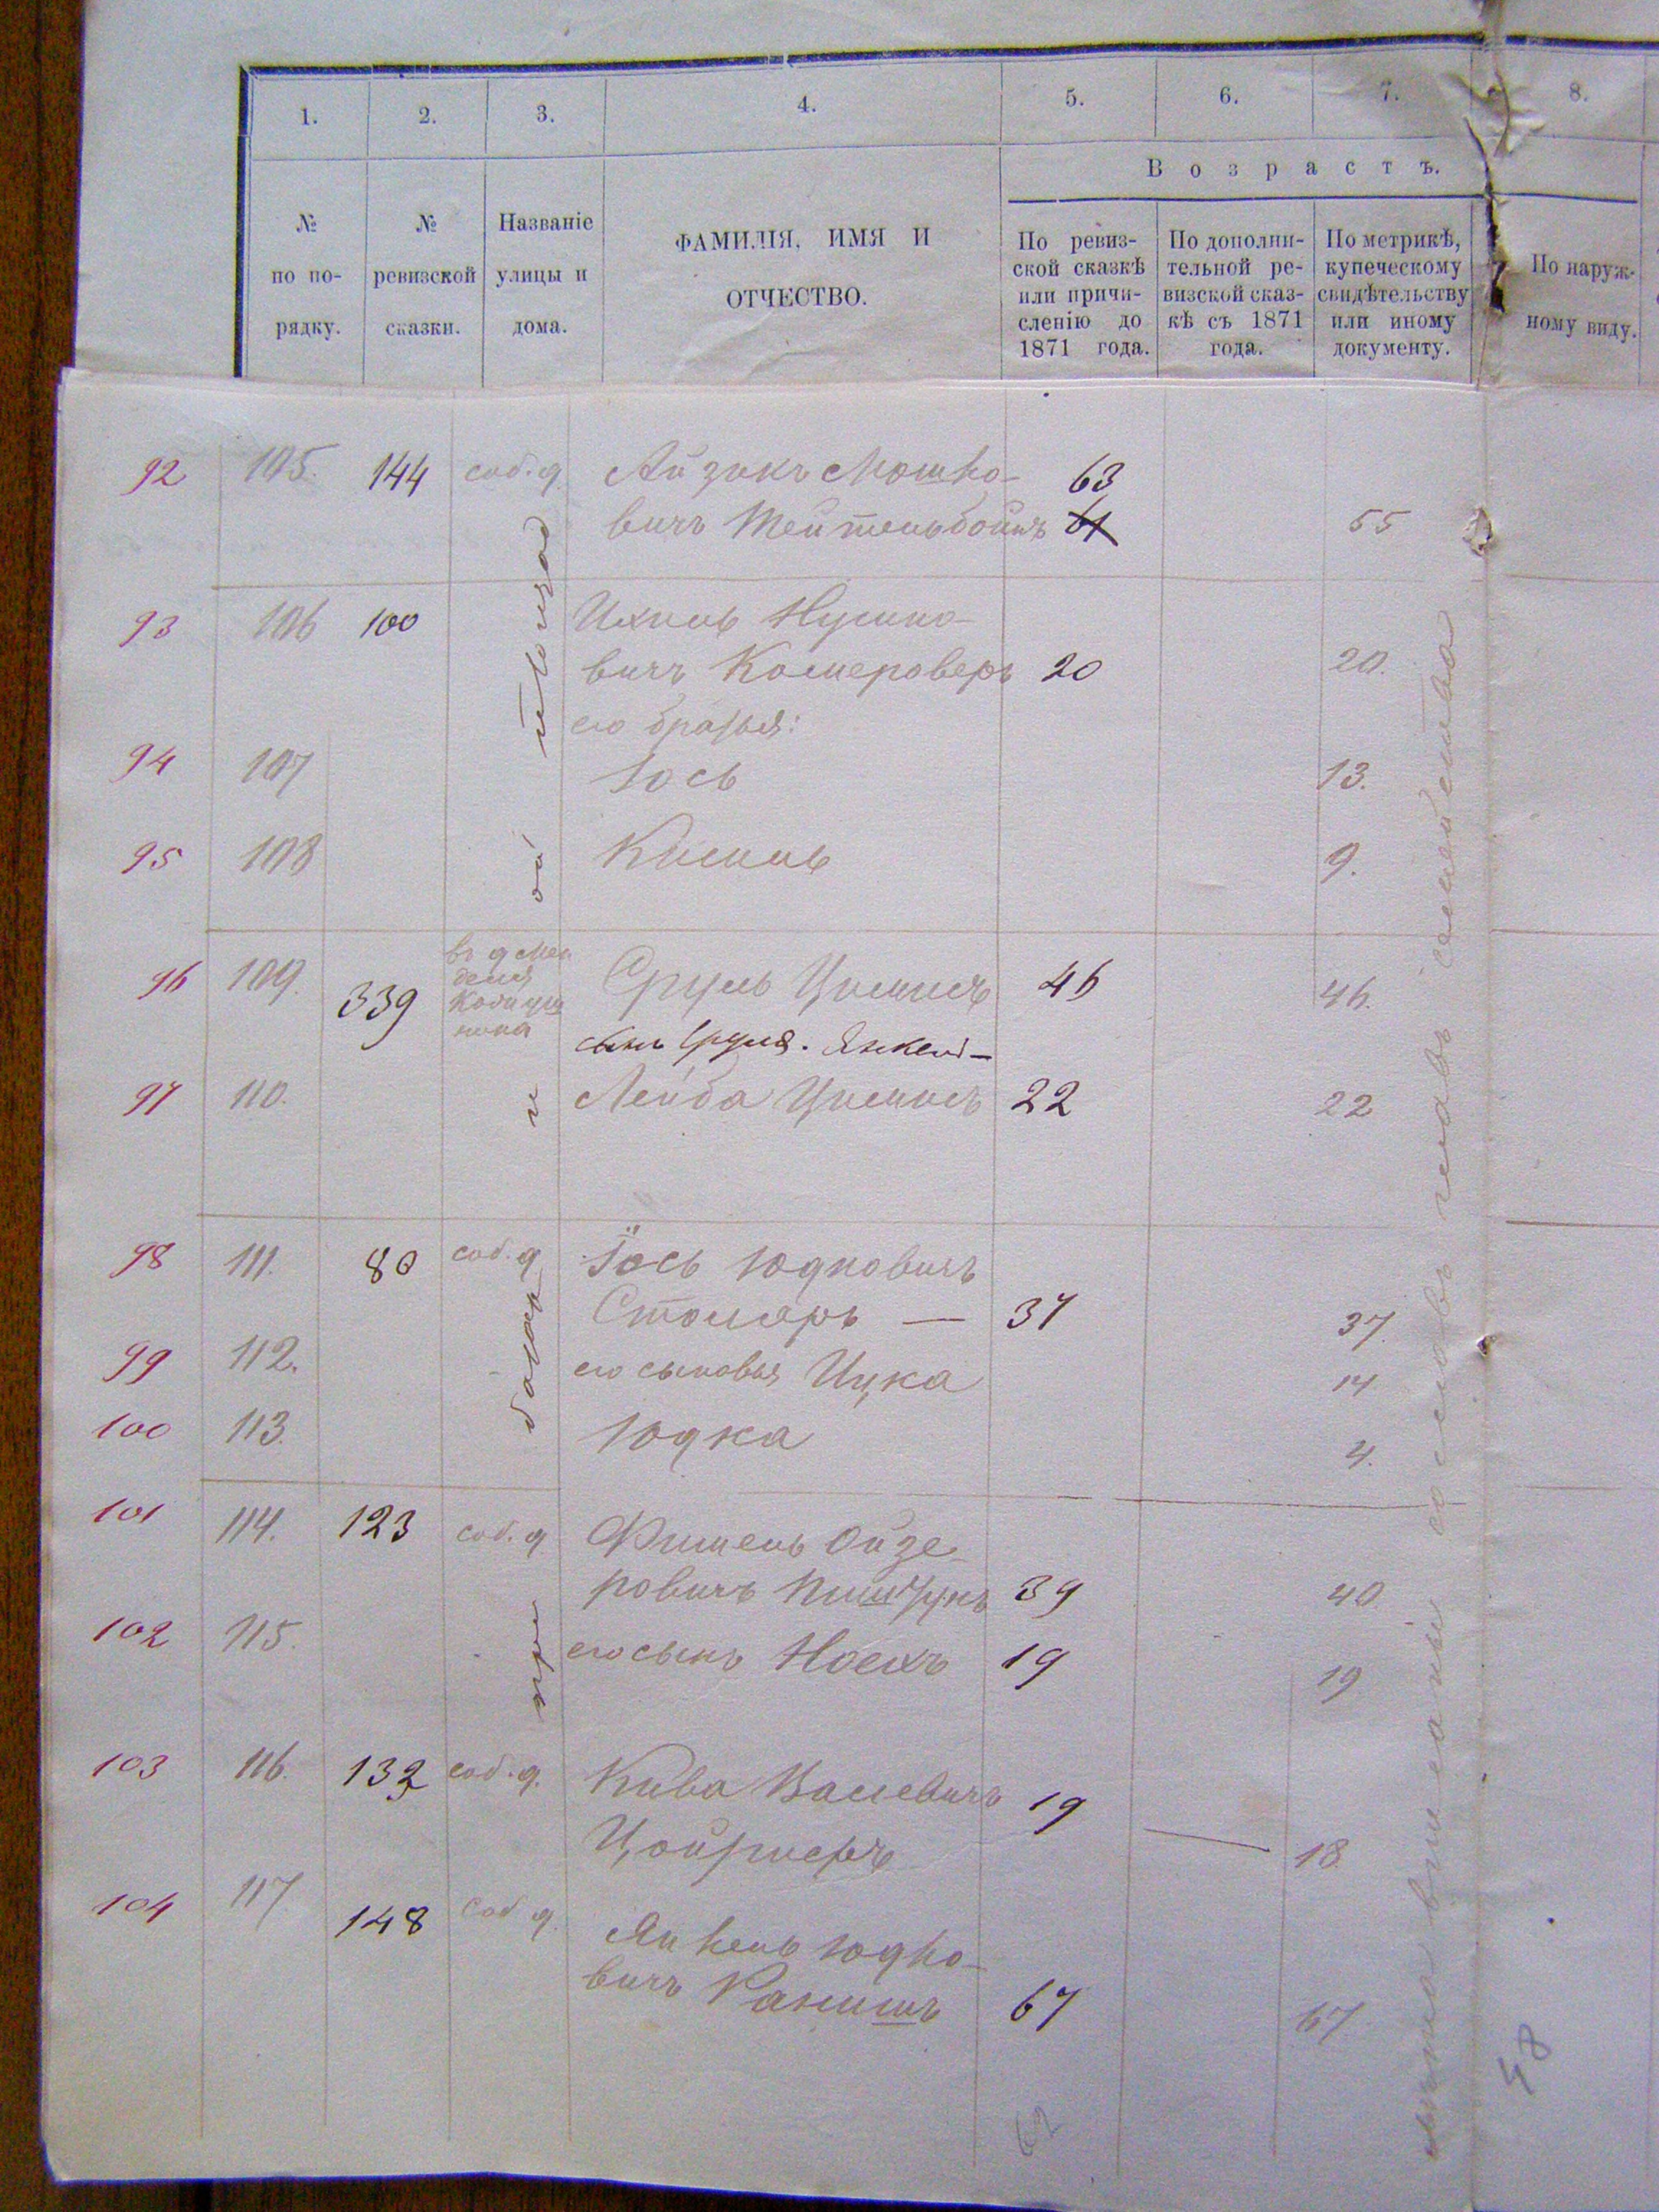 1. 2. 3. 4. 5. 6. 7. 8.
Возрастъ.
№ по по- рядку.
№ ревизской сказки.
Названіе улицы и дома.
ФАМИЛІЯ, ИМЯ И
ОТЧЕСТВО.
По ревиз-
ской сказкѣ
или причи-
сленію до
1871 года.
По дополни-
тельной ре-
визской сказ-
кѣ съ 1871
года.
По метрикѣ,
купеческому
свидѣтельству
или иному
документу.
По наруж-
ному виду.
92 105. 144 соб. д. Айзикъ Мошко- 63
вичъ Тейтельбоймъ 61 55
93 106 100 Ихиль Нусино-
вичъ Комероверъ 20 20.
его братья:
94 107 Іось 13.
95 108 9.
96 109. 339 въ д Мен
деля
Сруль 46 46.
сынъ Сруля. Янкель-
97 110. Лейба 22 22
98 111. 80 соб. д Іось Юдковичъ
Столяръ — 37 37.
99 112. его сыновья Ицка 14
100 113. Юдка 4.
101 114. 123 соб. д Фишель Ойзе-
ровичъ 39 40
102 115. его сынъ Ноехъ 19 19
103 116. 132 соб. д. Кива 19
18.
104 117. 148 соб д. Янкель Юдко-
вичъ 67 67.
48